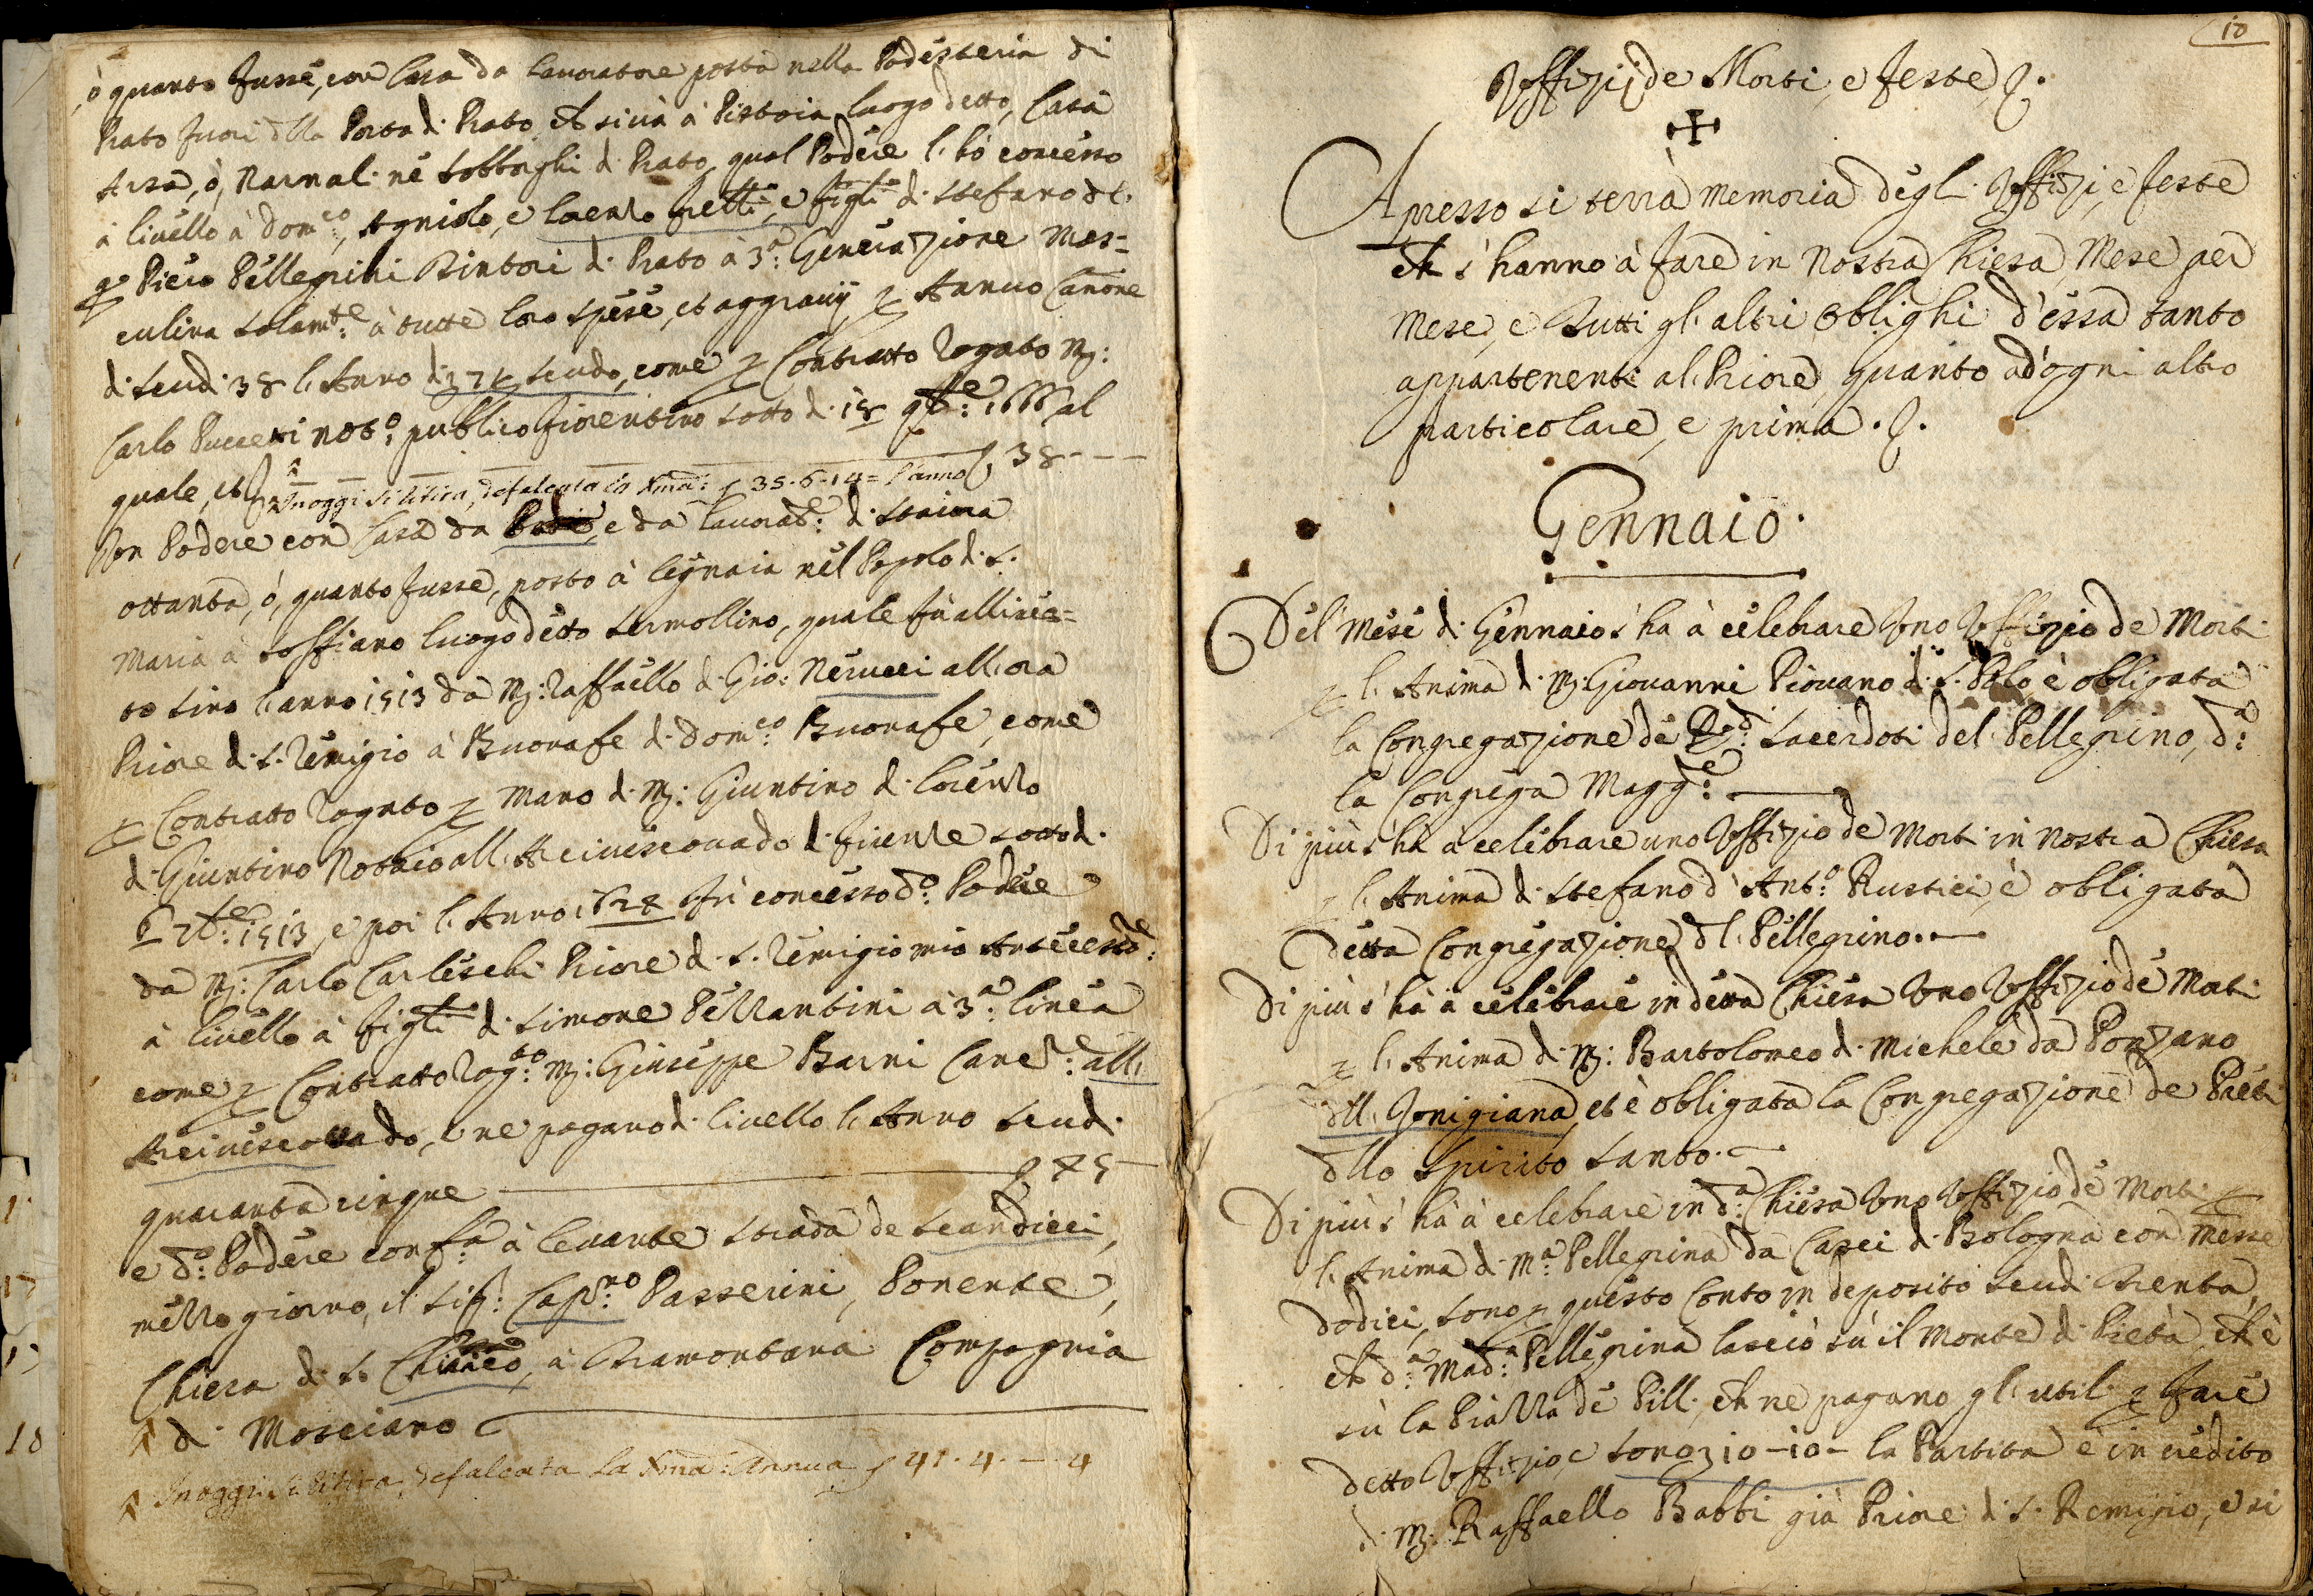 ò quanto fusse, con Casa da lauoratore posta nella Podesteria di
Prato fuori dlla Porta d. Prato, ch si uà à Pistoia luogo detto, Casa
Arsa, ò, Narnal. nè sobborghi d. Prato, qual Podere l. hò concesso
à liuello à Dom:co, Agniolo, e Lorenzo fretti, e figli d. Stefano dl.
q. Piero Pellegrini Pintori d. Prato à 3:a Generazione mas=
culina solam:te à tutte loro spese, et aggrauij p Annuo Canone
d. scud. 38 l. Anno d. scudo, come p Contratto Rogato M:
Carlo Puccetti not:o publico fiorentino sotto d. 18 9b:e 1666 al
quale, et 38 ---
Inoggi si litira, defalcata la Xma: 35.6.14= l'anno
Un Podere con Casa da e da lauorat:e d. staiora
ottanta, ó, quanto fusse, posto à legnaia nel Popolo d. S.
Maria à soffiano luogo detto Sermollino, quale fù alliuela=
to sino l'anno 1513 da M: Raffaello d. Gio: Nerucci all. ora
Priore d. S. Remigio à Buonafe d. Dom:co Buonafe, come
p Contratto Rogato p mano d. M: Giuntino d. Lorenzo
d. Giuntino Notaio all. Arciuescouado d. firenze sotto d.
6 7b:e 1513, e poi l. Anno fù concesso d:o Podere
da M: Carlo Carleschi Priore d. S. Remigio mio Antecesso:
à liuello à figli d. Simone Pezzantini à 3:a linea
come p Contratto Rog:to M: Giuseppe Barni Canc:e all.
Arciuescouado, e ne pagano d. liuello l. Anno scud.
quaranta cinque 45
e d:o Podere conf:a à leuante strada de scandicci,
mezzo giorno, il Sig: Cap:no Passerini, Ponente,
Chiesa d. S. à Tramontana Compagnia
d. Mosciano
Inoggi si litira, defalcata la Xma: Annua 41.4.-.4
10
Vffizij de Morti, e feste
Apresso si terrà memoria degl. Vffizi, e feste
ch s'hanno à fare in nostra Chiesa, Mese per
Mese, e Tutti gl. altri oblighi d'essa tanto
appartenenti al Priore, quanto ad'ogni altro
particolare, e prima.
Gennaio.
Del mese d. Gennaio s'ha à celebrare Vno Vffizio de Morti
p l. Anima d. M: Giouanni Piouano d. S. Polo, è obligata
la Congregazione de Rd: Sacerdoti del Pellegrino, d:a
la Congrega Magg:e
Di più s'hà à celebrare uno Vffizio de Morti in nostra Chiesa
p l. Anima d. Stefano d'Ant:o Rustici, è obligata
detta Congregazione dl. Pellegrino.
Di più s'hà à celebrare in detta Chiesa Vno Vffizio de Morti
p l. Anima d. M: Bartolomeo d. Michele da Ponzano
dll. Vonigiana, et è obligata la Congregazione de Preti
dllo Spirito Santo.
Di più s'hà à celebrare in d:a Chiesa Vno Vffizio de Morti p
l. Anima d. M:a Pellegrina da Casei d. Bologna con messe
dodici, sono p questo Conto in deposito scud. Trenta,
ch d:a Mad:a Pellegrina lasciò sù il Monte d. Pietà, ch è
sù la Piazza de Pilli, ch ne pagano gl. utili p fare
detto Vffizio, e sono 10-10- la Partita è in credito
d. M: Raffaello Babbi già Priore d. S. Remigio, e si